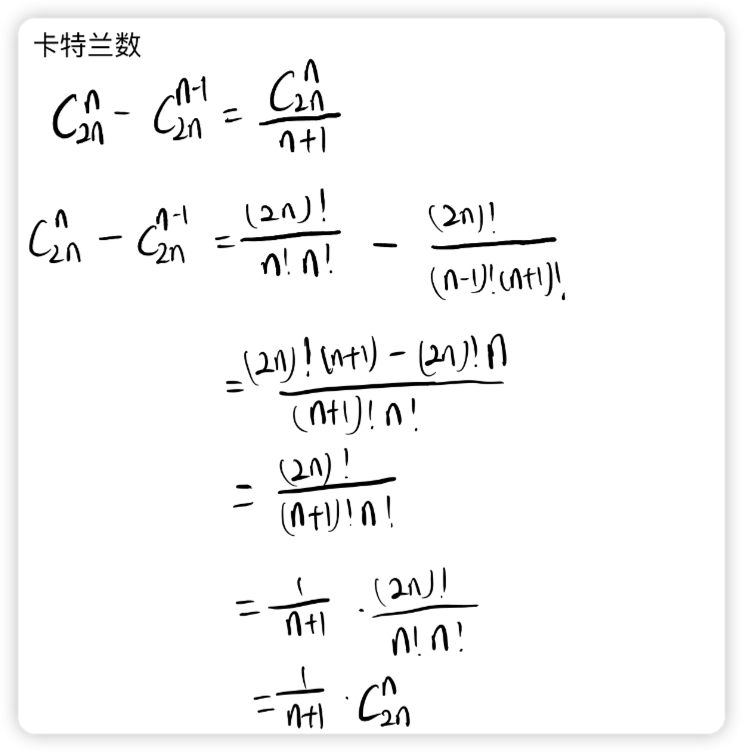 卡特兰数
$C_{2n}^{n} - C_{2n}^{n-1} = \frac{C_{2n}^{n}}{n+1}$
$C_{2n}^{n} - C_{2n}^{n-1} = \frac{(2n)!}{n!\,n!} - \frac{(2n)!}{(n-1)!(n+1)!}.$
$= \frac{(2n)!(n+1) - (2n)!\,n}{(n+1)!\,n!}$
$= \frac{(2n)!}{(n+1)!\,n!}$
$= \frac{1}{n+1} \cdot \frac{(2n)!}{n!\,n!}$
$= \frac{1}{n+1} \cdot C_{2n}^{n}$